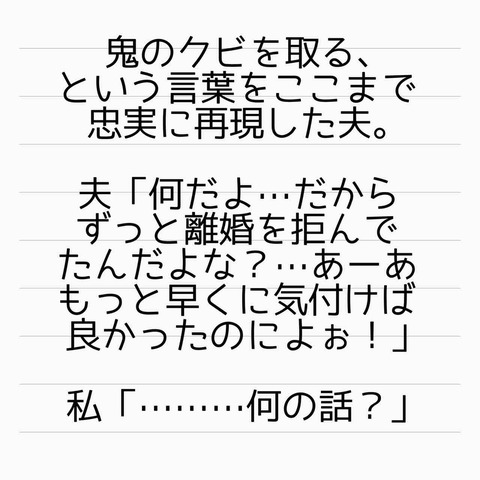 鬼のクビを取る、
という言葉をここまで
忠実に再現した夫。
夫「何だよ…だから
ずっと離婚を拒んで
たんだよな？…あーあ
もっと早くに気付けば
良かったのによぉ！」
私「………何の話？」